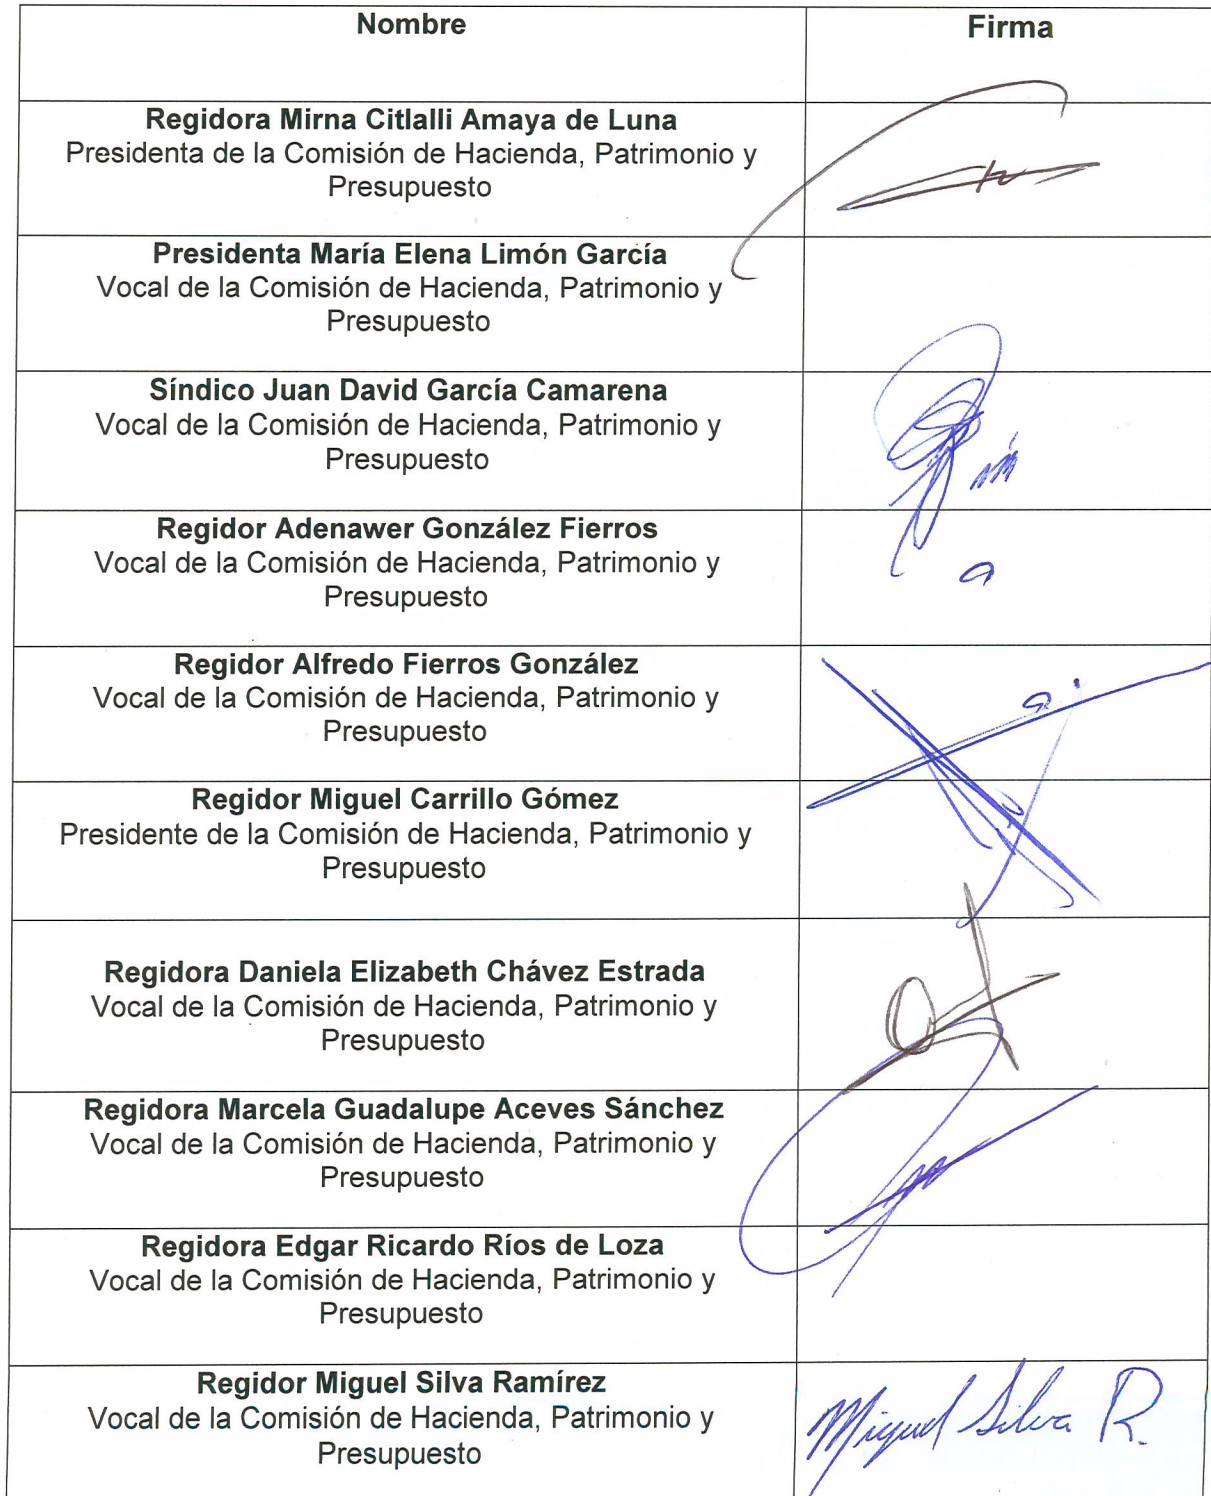 Nombre
Firma
Regidora Mirna Citlalli Amaya de Luna
Presidenta de la Comisión de Hacienda, Patrimonio y
Presupuesto
Presidenta María Elena Limón García
Vocal de la Comisión de Hacienda, Patrimonio y
Presupuesto
Síndico Juan David García Camarena
Vocal de la Comisión de Hacienda, Patrimonio y
Presupuesto
Regidor Adenawer González Fierros
Vocal de la Comisión de Hacienda, Patrimonio y
Presupuesto
Regidor Alfredo Fierros González
Vocal de la Comisión de Hacienda, Patrimonio y
Presupuesto
Regidor Miguel Carrillo Gómez
Presidente de la Comisión de Hacienda, Patrimonio y
Presupuesto
Regidora Daniela Elizabeth Chávez Estrada
Vocal de la Comisión de Hacienda, Patrimonio y
Presupuesto
Regidora Marcela Guadalupe Aceves Sánchez
Vocal de la Comisión de Hacienda, Patrimonio y
Presupuesto
Regidora Edgar Ricardo Ríos de Loza
Vocal de la Comisión de Hacienda, Patrimonio y
Presupuesto
Regidor Miguel Silva Ramírez
Vocal de la Comisión de Hacienda, Patrimonio y
Presupuesto
Miguel Silva R.